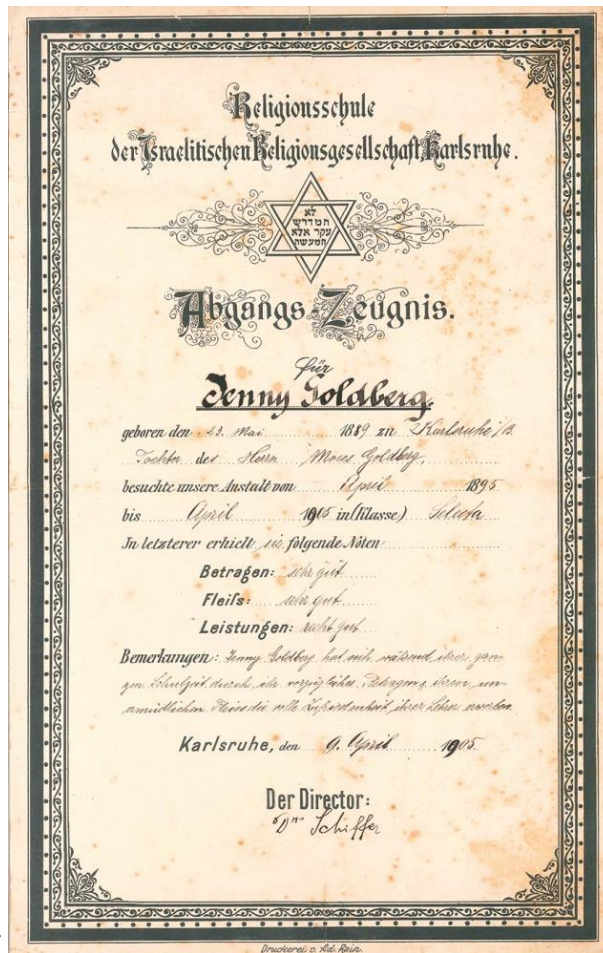 Religionsschule
der Israelitischen Religionsgesellschaft, Karlsruhe.
לא
המדרש
עקר אלא
המעשה
Abgangs-Zeugnis.
für
Jenny Goldberg.
geboren den 23. Mai 1889 zu Karlsruhe i/B.
Tochter des Herrn Moses Goldberg,
besuchte unsere Anstalt von April 1895
bis April 1905 in (Klasse) Selecta
In letzterer erhielt sie folgende Noten
Betragen: sehr gut
Fleiß: sehr gut
Leistungen: recht gut
Bemerkungen: Jenny Goldberg hat sich während ihrer gan-
zen Schulzeit durch ihr vorzügliches Betragen, ihren un-
ermüdlichen Fleiss die volle Zufriedenheit ihrer Lehrer erworben.
Karlsruhe, den 9. April 1905.
Der Director:
Dr. Schiffer
Druckerei v. Ad. Rein.